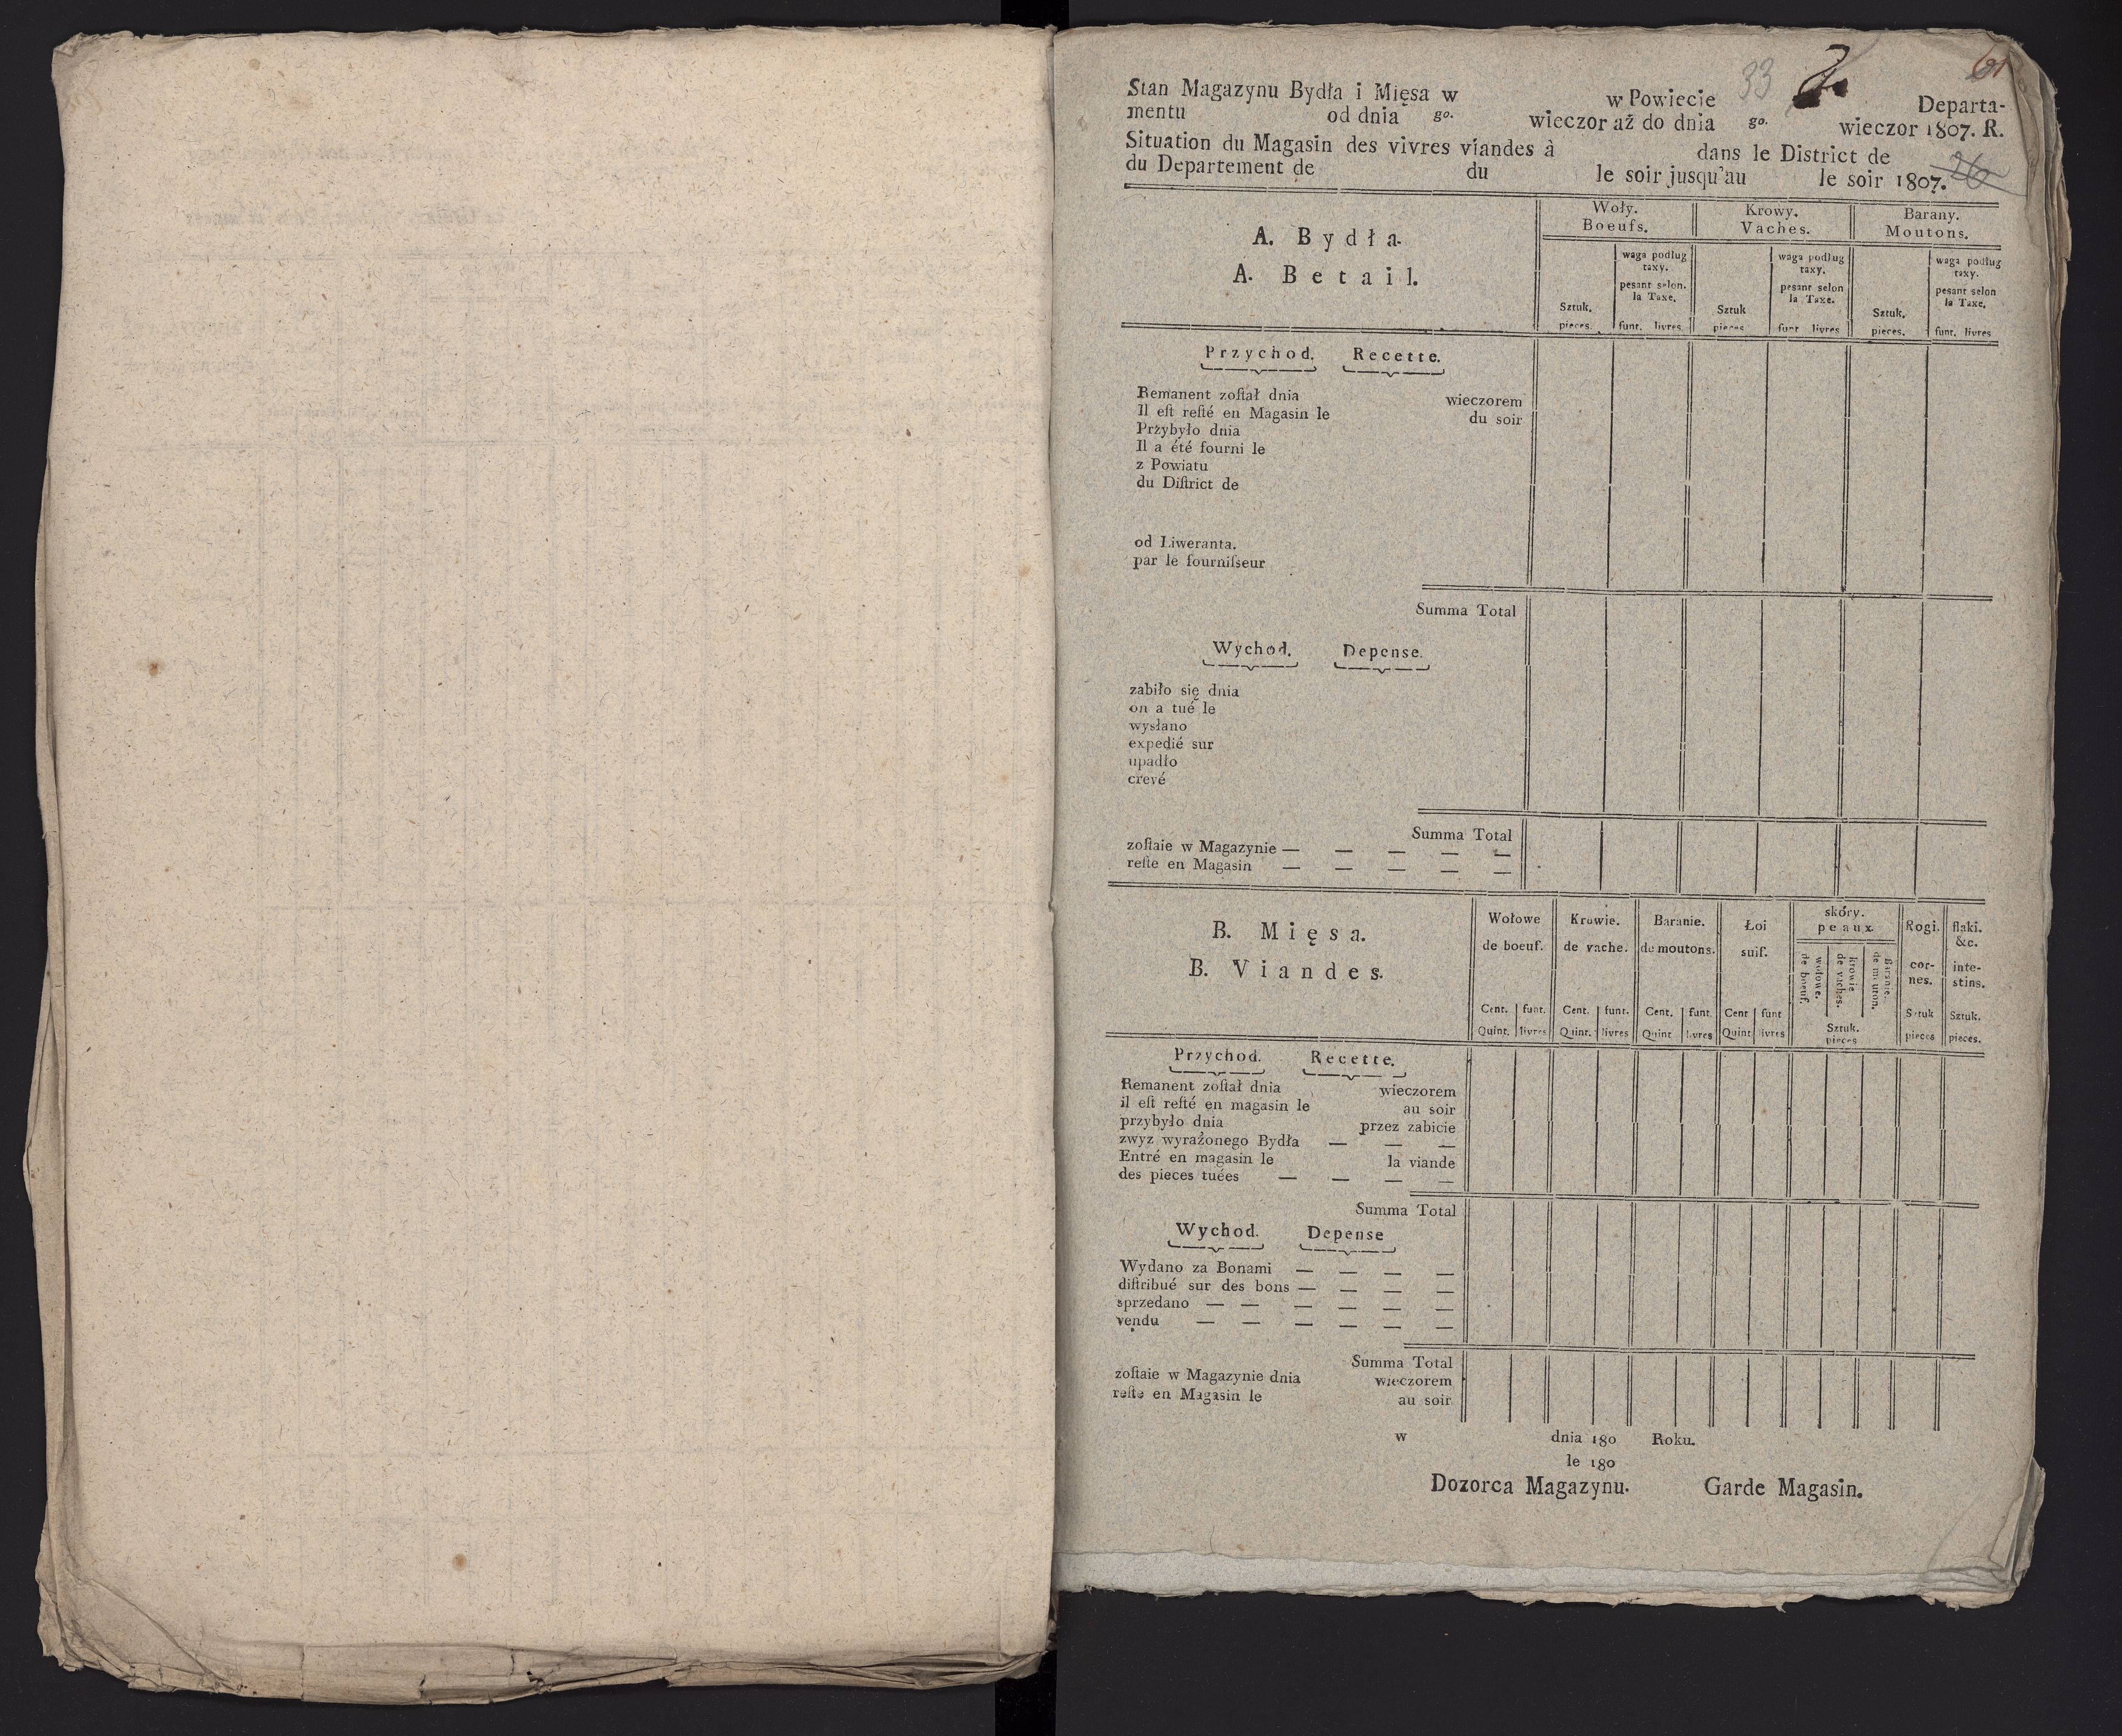 33 61
Stan Magazynu Bydła i Mięsa w w Powiecie Departa-
mentu od dnia go. wieczor aż do dnia go. wieczor 1807. R.
Situation du Magasin des vivres viandes à dans le District de
du Departement de du le soir jusqu'au le soir 1807. 26
Woły. Krowy. Barany.
Boeufs. Vaches. Moutons.
A. Bydła.
A. Betail.
waga podług waga podług waga podług
taxy. taxy. taxy.
pesant selon. pesant selon pesant selon
la Taxe. la Taxe. la Taxe.
Sztuk. Sztuk Sztuk.
pieces. funt. livres. pieces funt livres pieces. funt. livres
Przychod. Recette.
Remanent zoſtał dnia wieczorem
Il eſt reſté en Magasin le du soir
Przybyło dnia
Il a été fourni le
z Powiatu
du Diſtrict de
od Liweranta.
par le fourniſseur
Summa Total
Wychod. Depense.
zabiło się dnia
on a tué le
wysłano
expedié sur
upadło
crevé
Summa Total
zoſtaie w Magazynie — — — — —
reſte en Magasin — — — — —
B. Mięsa.
B. Viandes.
Wołowe Krowie. Baranie. Łoi skóry. Rogi. flaki.
de boeuf. de vache. de moutons. suif. peaux. cor- &c.
nes. inte-
stins.
wołowe. krowie baranie.
de boeuf. de vaches. de mouton.
Cent. funt. Cent. funt. Cent. funt. Cent funt Sztuk. Sztuk Sztuk.
Quint. livres Quint. livres Quint livres Quint livres pieces pieces pieces.
Przychod. Recette.
Remanent zoſtał dnia wieczorem
il eſt reſté en magasin le au soir
przybyło dnia przez zabicie
zwyz wyrażonego Bydła — — —
Entré en magasin le la viande
des pieces tuées — — — —
Summa Total
Wychod. Depense
Wydano za Bonami — — — —
diſtribué sur des bons — — — —
sprzedano — — — — — —
vendu — — — — — —
Summa Total
zoſtaie w Magazynie dnia wieczorem
reſte en Magasin le au soir
w dnia 180 Roku.
le 180
Dozorca Magazynu. Garde Magasin.